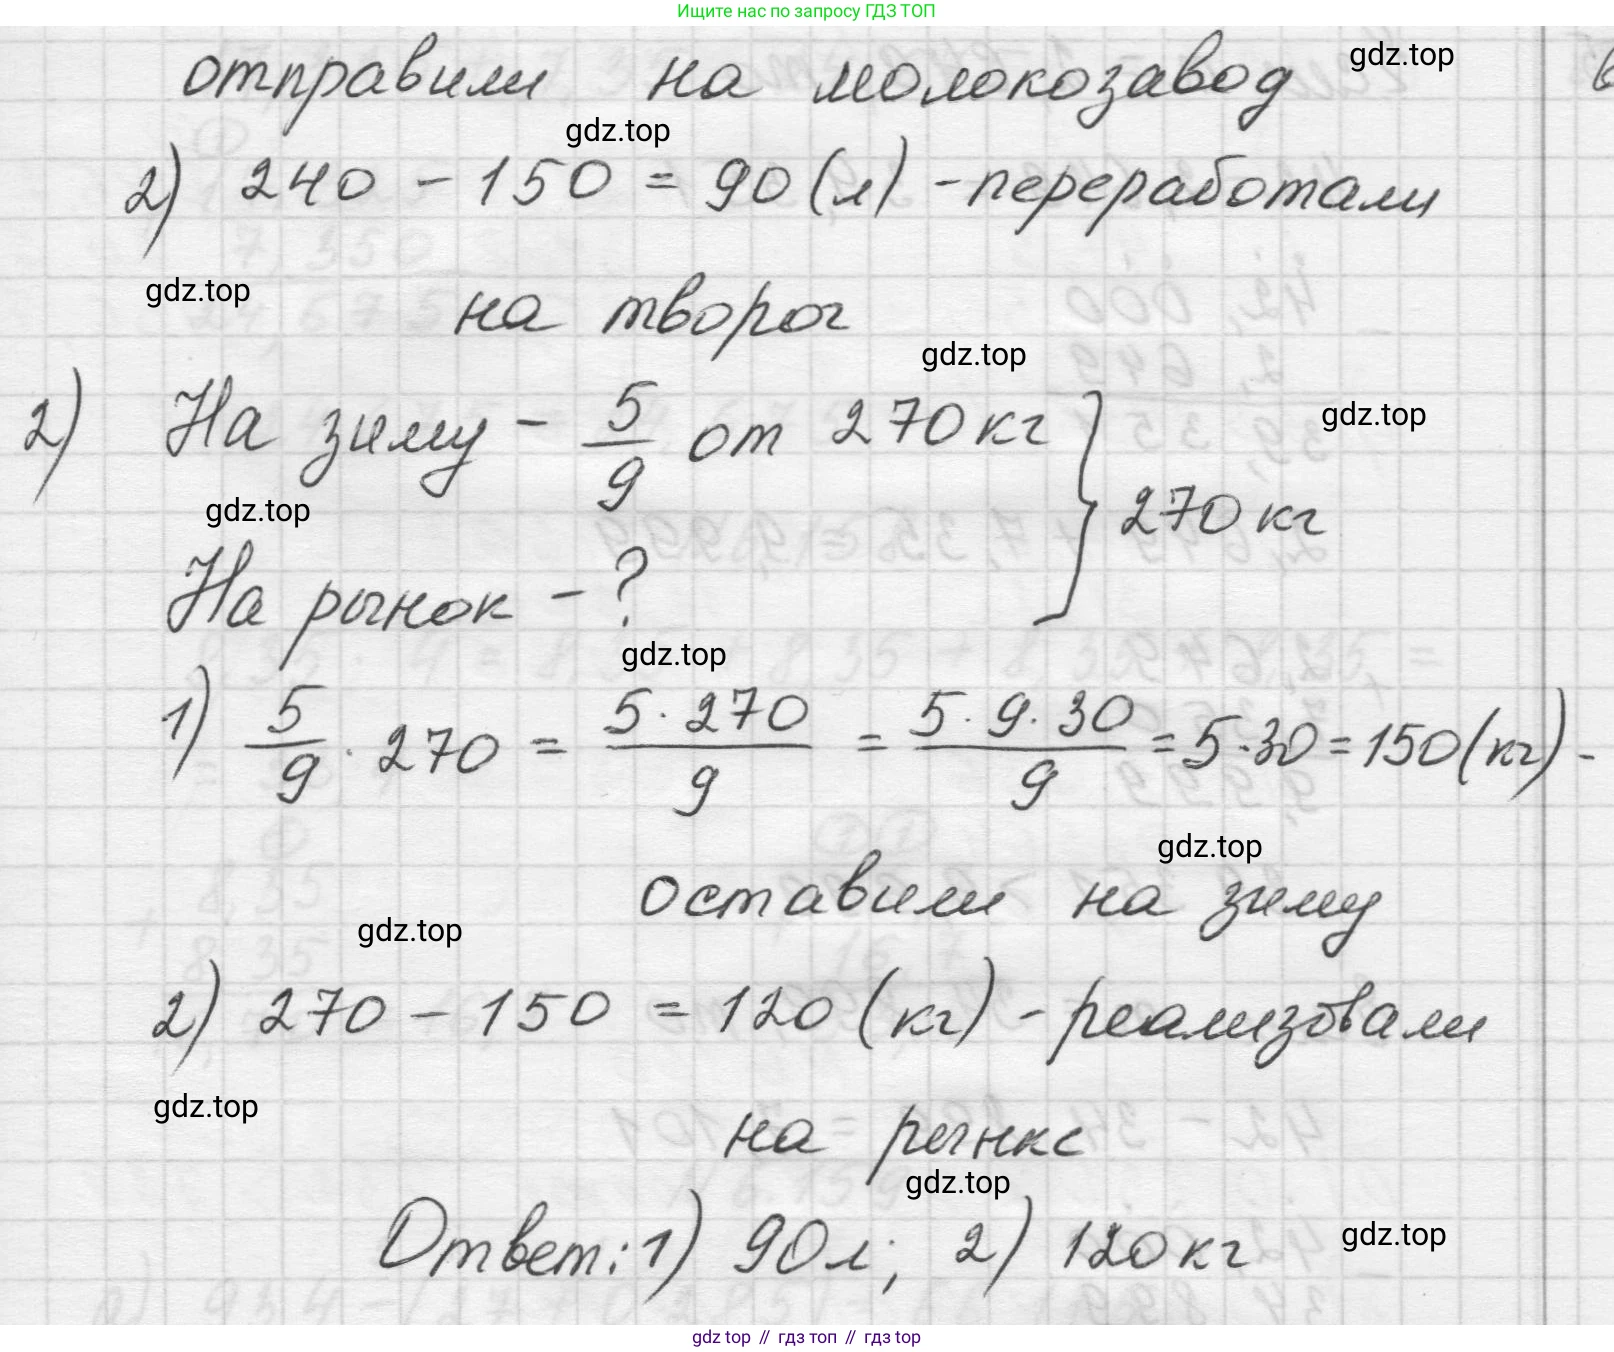 Ищите нас по запросу ГДЗ ТОП
отправили на молокозавод
gdz.top
gdz.top
2) 240 - 150 = 90 (л) - переработали
gdz.top
на творог
gdz.top
2) На зиму - 5/9 от 270 кг
gdz.top
} 270 кг
gdz.top
На рынок - ?
gdz.top
1) 5/9 · 270 = 5 · 270/9 = 5 · 9 · 30/9 = 5 · 30 = 150 (кг) -
gdz.top
оставили на зиму
gdz.top
2) 270 - 150 = 120 (кг) - реализовали
gdz.top
на рынке
gdz.top
Ответ: 1) 90 л; 2) 120 кг
gdz.top
gdz top // гдз топ // гдз top